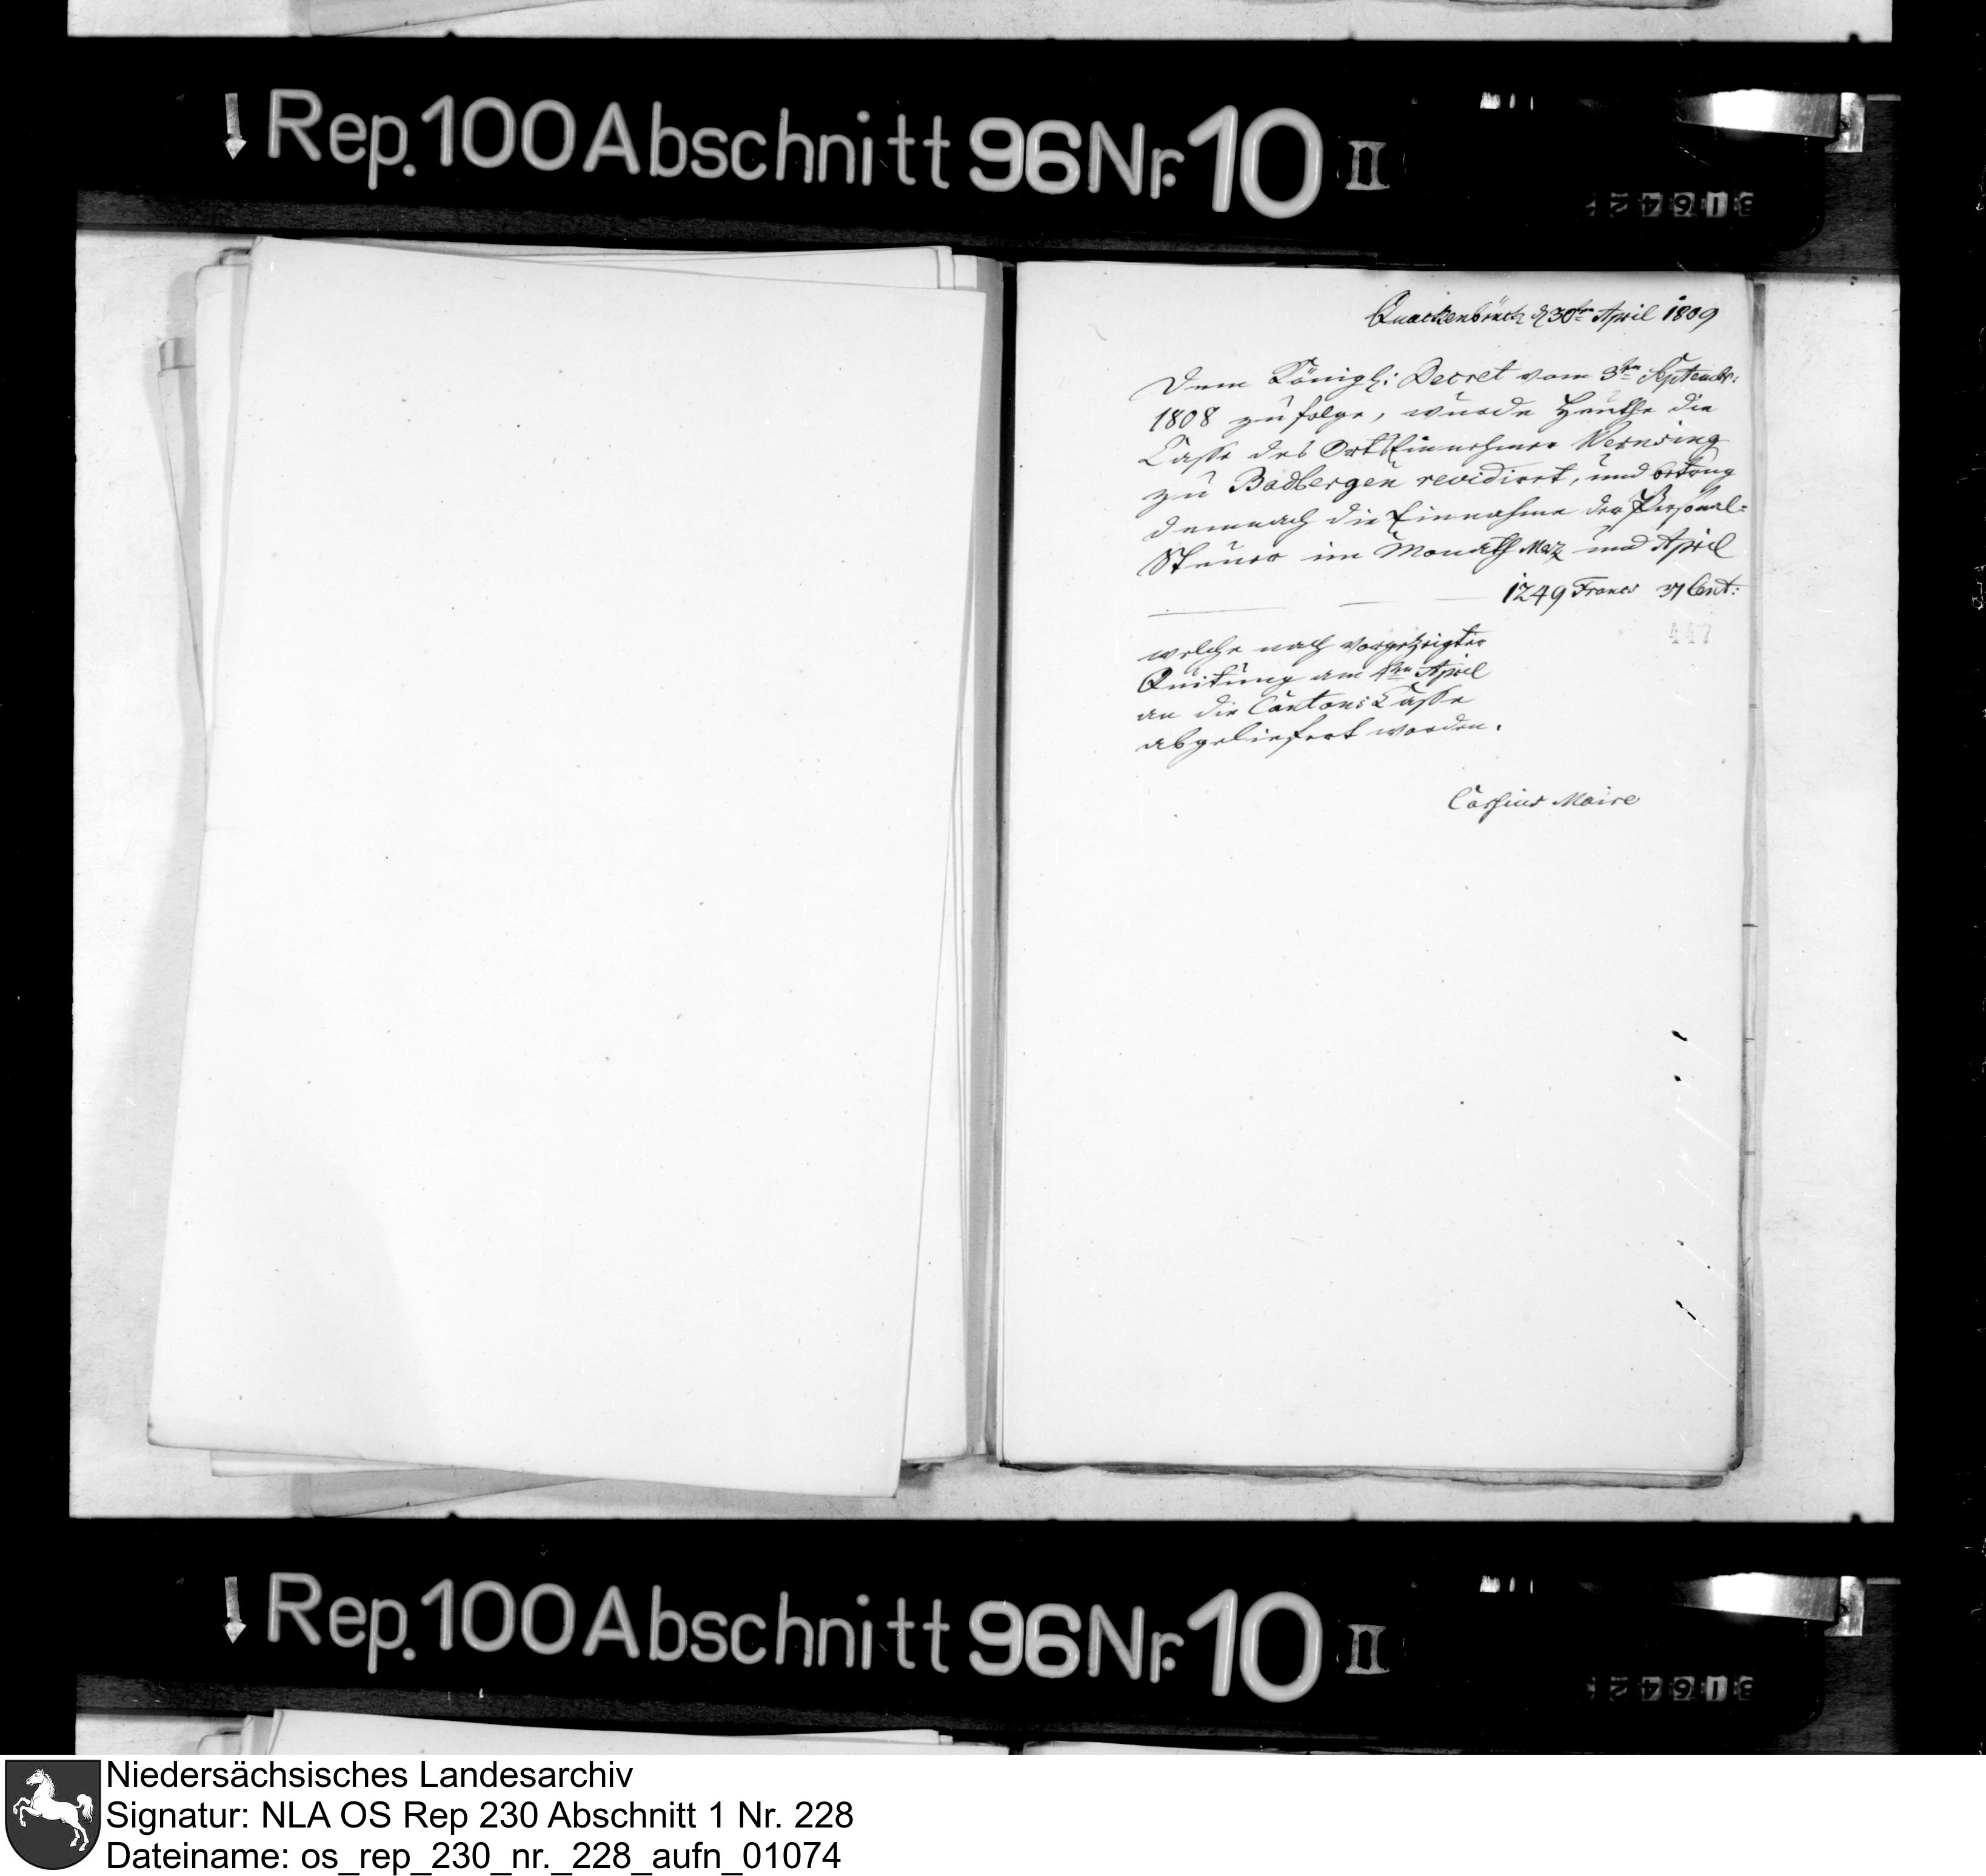 Rep. 100 Abschnitt 96 Nr. 10 II
316422
Quackenbrück d 30ten April 1809
Dem Königl: Decret vom 3ten Septembr:
1808 zu folge, wurde heuthe die
Casse des Orts Einnehmer
zu Badbergen revidirt, und betrug
demnach die Einnahme der Personal-
Steuer im Monath Merz und April
1249 Francs 37 Cent:
447
welche nach vorgezeigter
Quitung am 4ten April
an die Cantons Casse
abgeliefert worden.
Maire
Rep. 100 Abschnitt 96 Nr. 10 II
316422
Niedersächsisches Landesarchiv
Signatur: NLA OS Rep 230 Abschnitt 1 Nr. 228
Dateiname: os_rep_230_nr._228_aufn_01074